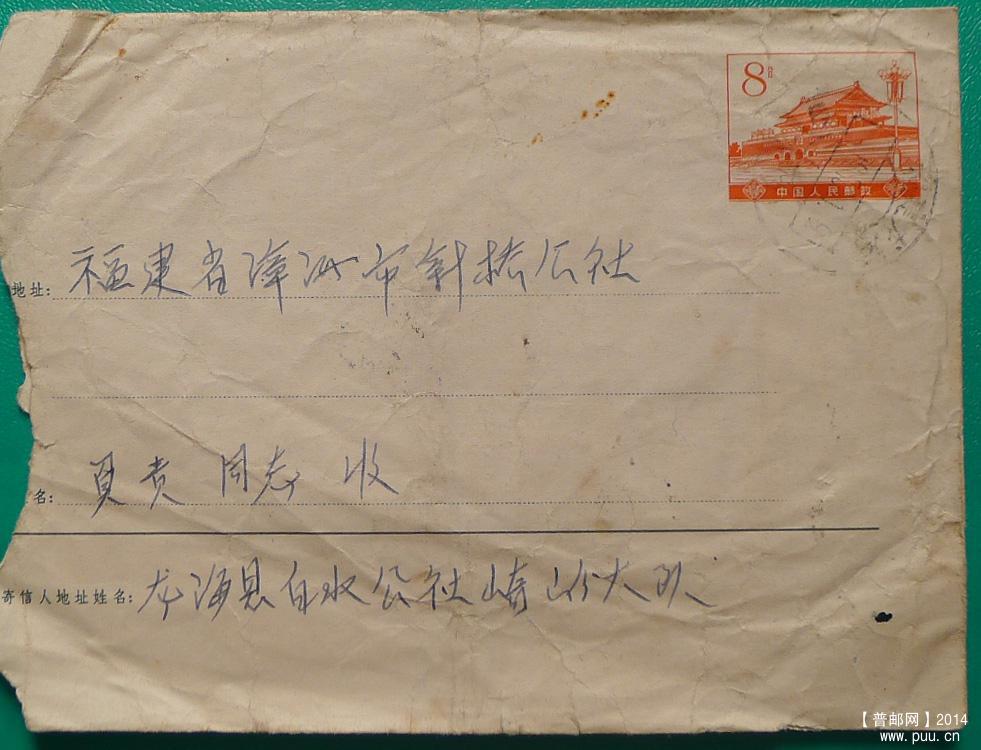 8分
中国人民邮政
地址: 福建省漳州市斜桥公社
名: 夏贵 同志 收
寄信人地址姓名: 龙海县白水公社崎岎大队
【普邮网】2014
www.puu.cn